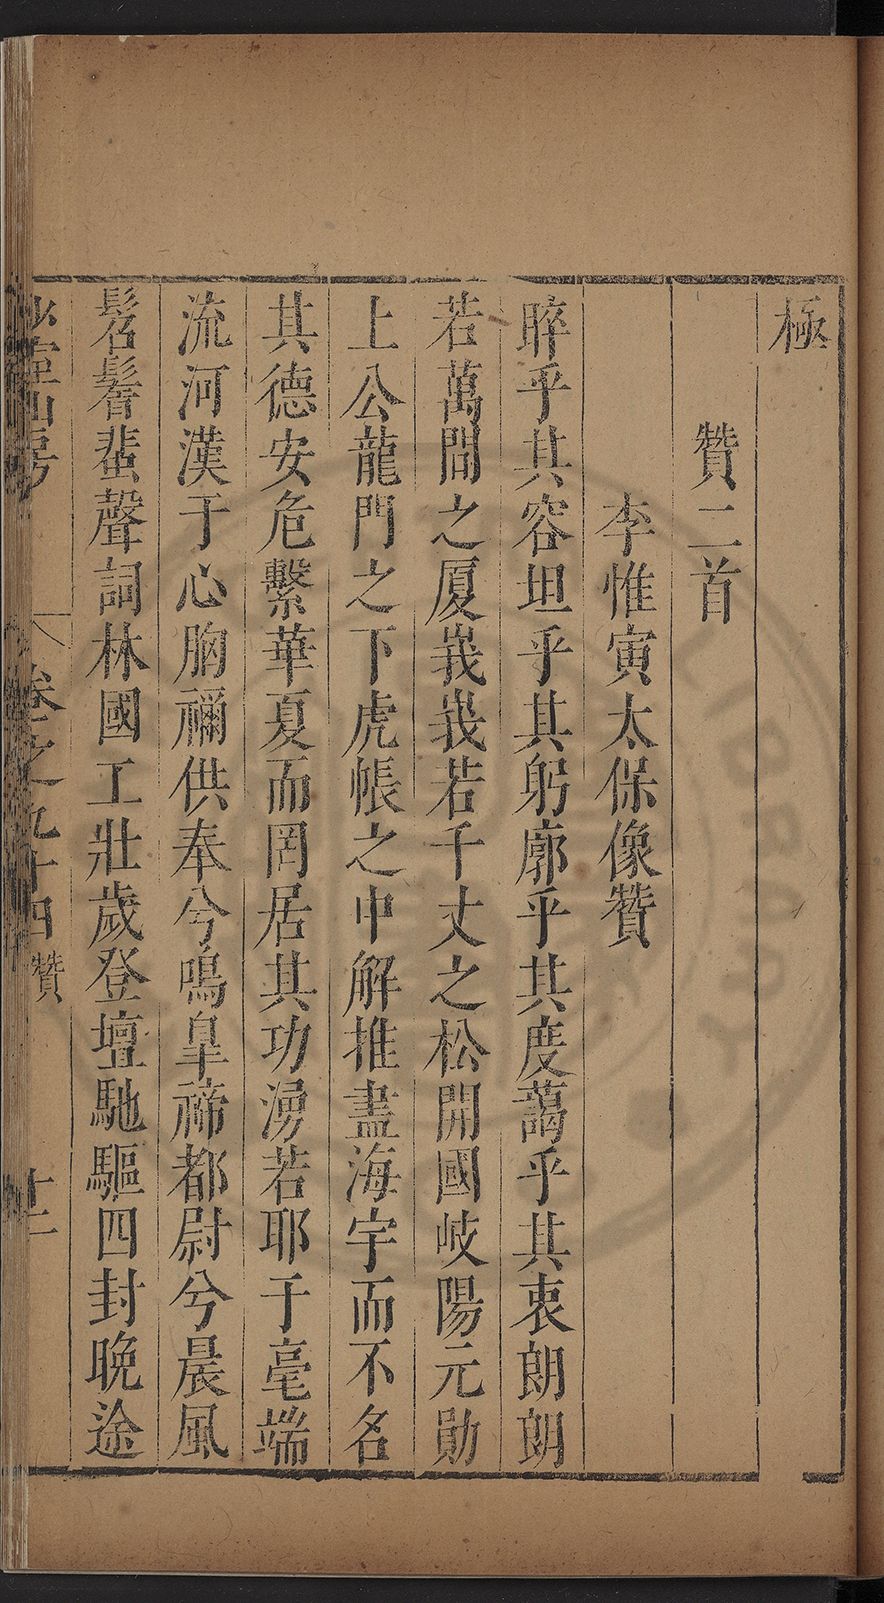 極
贊二首
李惟寅太保像贊
睟乎其容坦乎其躬廓乎其度藹乎其衷朗朗
若萬間之厦峩峩若千丈之松開國岐陽元勛
上公龍門之下虎帳之中解推盡海宇而不名
其德安危繫華夏而罔居其功湧若耶于毫端
流河漢于心胸禰供奉兮鳴皐禘都尉兮晨風
髫髫蜚聲詞林國工壯歲登壇馳驅四封晚途
卷之九十四 贊 十二